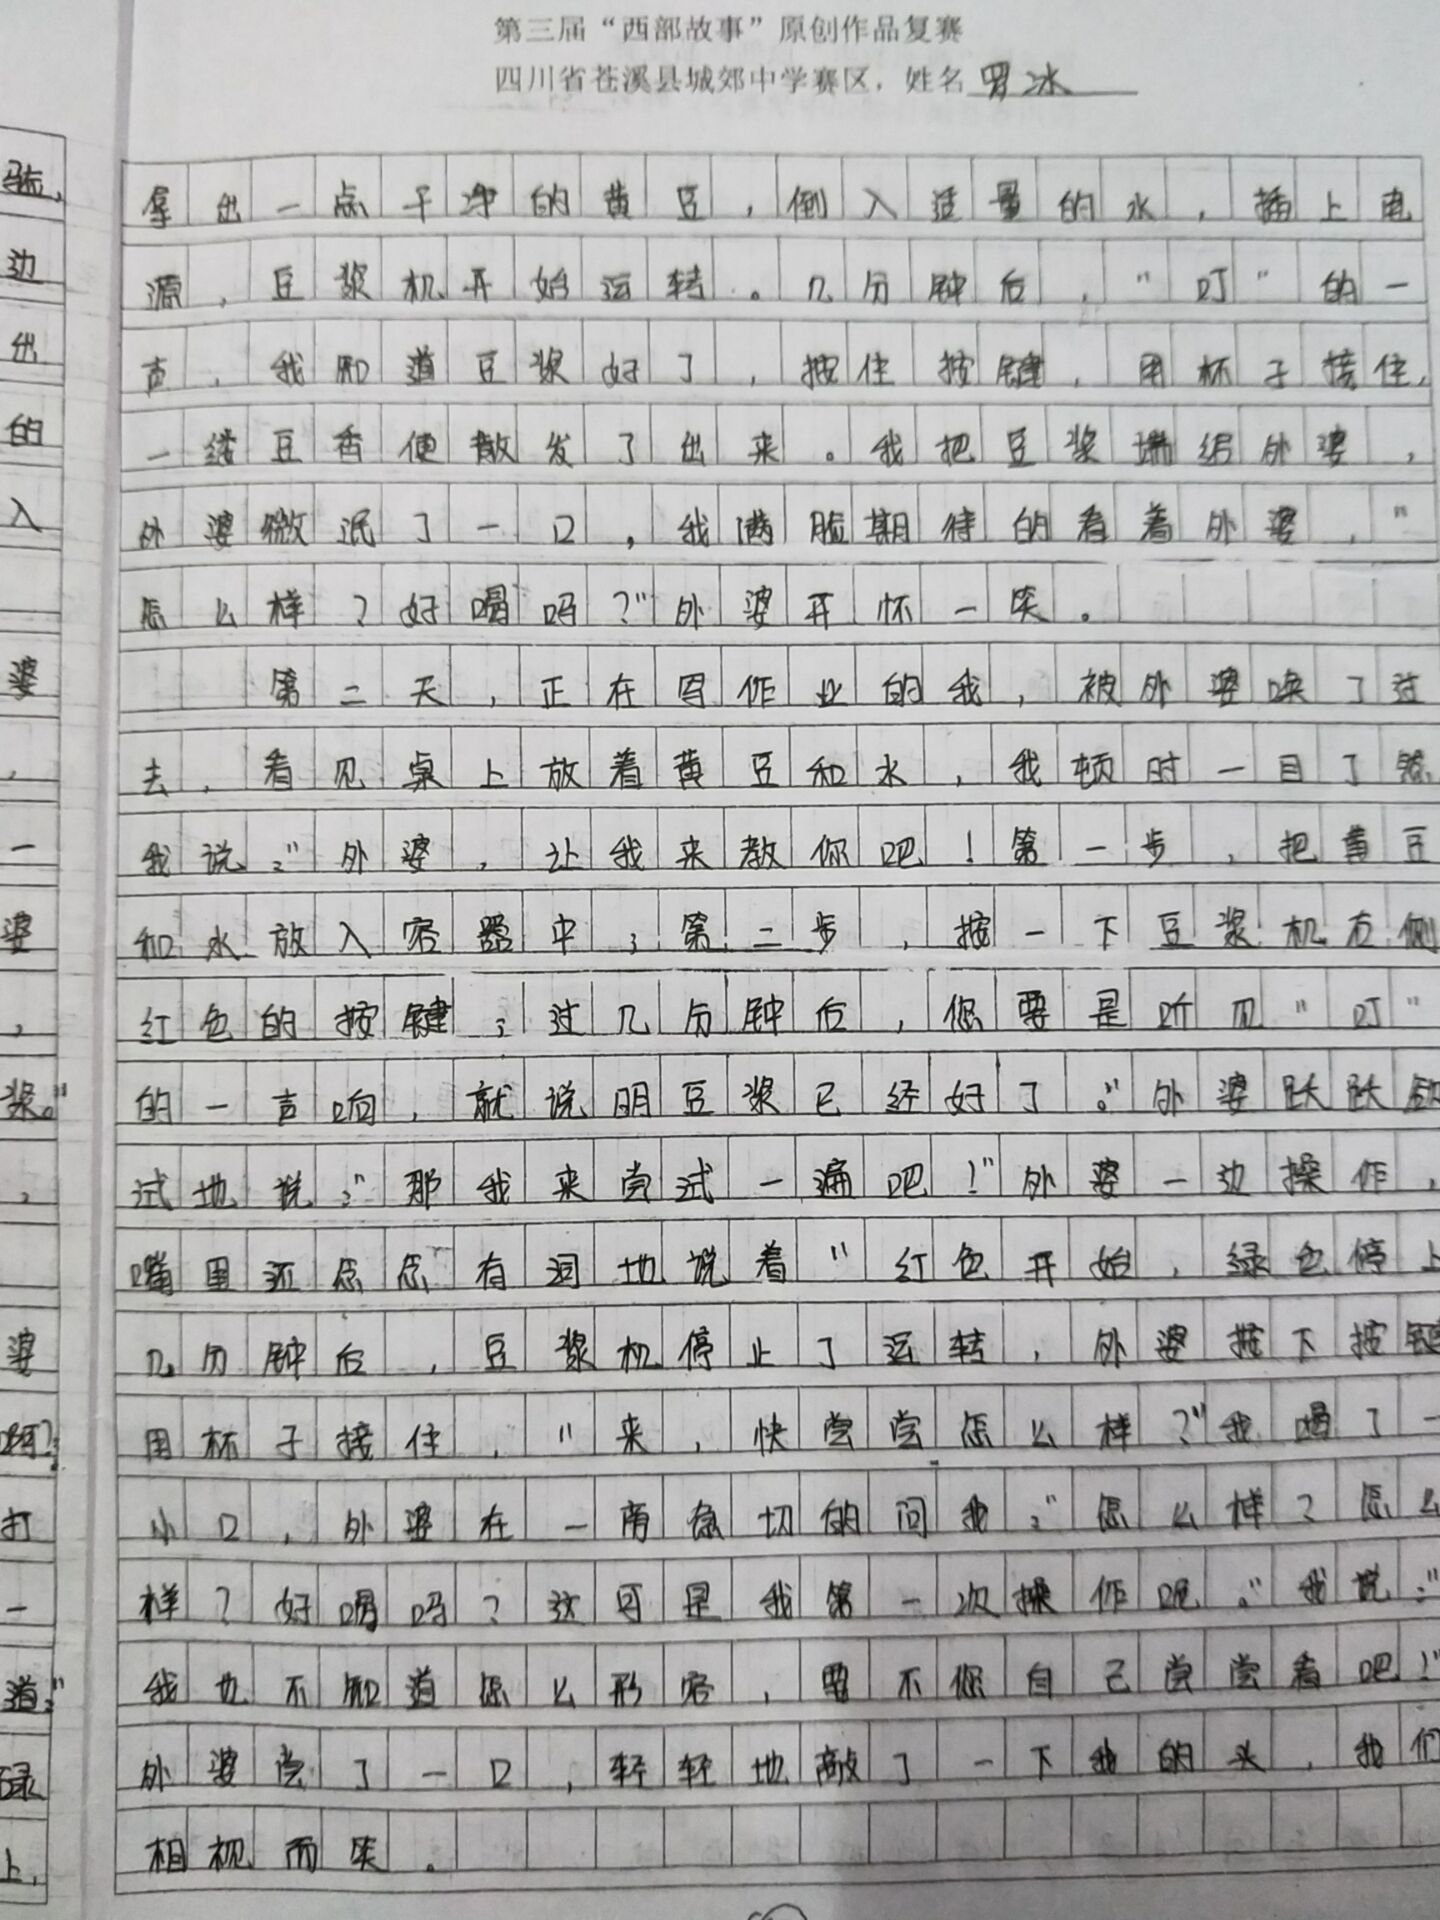 第三届“西部故事”原创作品复赛
四川省苍溪县城郊中学赛区，姓名罗冰
拿出一点干净的黄豆，倒入适量的水，插上电
源，豆浆机开始运转。几分钟后，“叮”的一
声，我知道豆浆好了，按住按键，用杯子接住，
一缕豆香便散发了出来。我把豆浆端给外婆，
外婆微泯了一口，我满脸期待的看着外婆，“
怎么样？好喝吗？”外婆开怀一笑。
第二天，正在写作业的我，被外婆唤了过
去，看见桌上放着黄豆和水，我顿时一目了然，
我说：“外婆，让我来教你吧！第一步，把黄豆
和水放入容器中；第二步，按一下豆浆机右侧
红色的按键；过几分钟后，您要是听见“叮”
的一声响，就说明豆浆已经好了。”外婆跃跃欲
试地说：“那我来尝试一遍吧！”外婆一边操作，
嘴里还念念有词地说着“红色开始，绿色停止
几分钟后，豆浆机停止了运转，外婆按下按键
用杯子接住，“来，快尝尝怎么样？”我喝了一
小口，外婆在一旁急切的问我：“怎么样？怎么
样？好喝吗？这可是我第一次操作呢。”我说：“
我也不知道怎么形容，要不您自己尝尝看吧！”
外婆尝了一口，轻轻地敲了一下我的头，我们
相视而笑。
验，
边
出
的
入
婆
，
一
婆
，
浆。”
，
婆
啊？
打
一
道：“
绿
上，